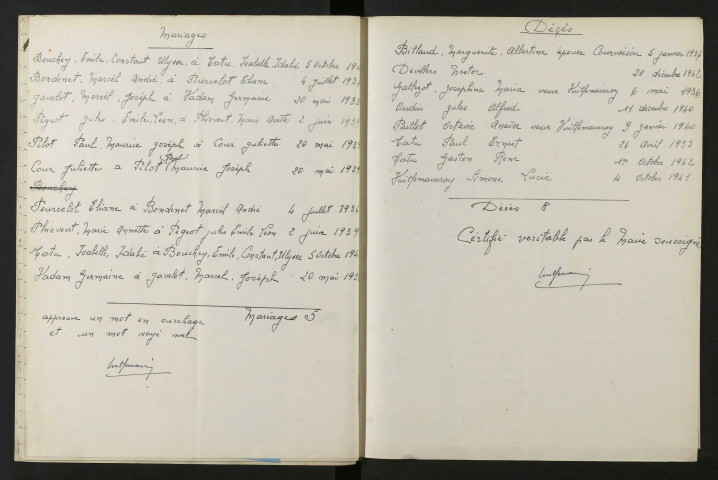 Mariages
Bouchey, Emile, Constant Ulysse, à Tatu, Isabelle, Idalie 5 octobre 194
Bordenet, Marcel André, à Pourcelot Eliane 4 juillet 193
Gavelot, Marcel, Joseph à Vadam Germaine 20 mai 193
Pegeot jules, Emile, Léon, à Thiévent, Marie 2 juin 1939
Pilot Paul, Maurice joseph à Cour juliette 20 mai 1939
Cour juliette à Pilot Paul Maurice Joseph 20 mai 1939
Bouchey
Pourcelot Eliane à Bordenet Marcel André 4 juillet 193
Thiévent, Marie à Pégeot jules Emile Léon 2 juin 1939
Tatu, Isabelle, Idalie à Bouchey, Emile, Constant, Ulysse 5 octobre 194
Vadam Germaine à Gavelot, Marcel, Joseph 20 mai 193
Mariages 5
approuvé un mot en surcharge
et un mot rayé nul
Décès
Billaud, Marguerite, Albertine épouse Courvoisier 5 janvier 193
Devillers Nestor 30 décembre 1942
Gallizot, Josephine Maria veuve Huitfemauroy 6 mai 1936
Oudin jules Alfred 11 décembre 1940
Paillot Octavie Anaïse veuve Huitfemauroy 9 janvier 1940
Tatu Paul Ernest 24 avril 1933
Tatu Gaston René 1er octobre 1942
Huitfemauroy Simone Lucie 4 octobre 1941
Décès 8
Certifié véritable par le Maire soussigné